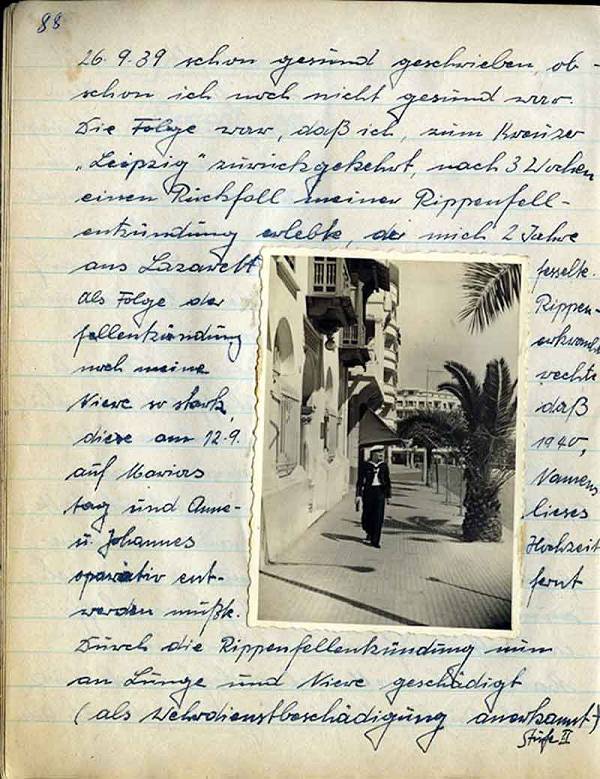 88
26.9.39 schon gesund geschrieben, ob-
schon ich noch nicht gesund war.
Die Folge war, daß ich, zum Kreuzer
„Leipzig" zurückgekehrt, nach 3 Wochen
einen Rückfall meiner Rippenfell-
entzündung erlebte, der mich 2 Jahre
ans Lazarett fesselte.
Als Folge der Rippen-
fellentzündung erkrankte
noch meine rechte
Niere so stark, daß
diese am 12.9. 1940,
auf Mariens Namens
tag und Anne-lieses
u. Johannes Hochzeit
operativ ent- fernt
werden mußte.
Durch die Rippenfellentzündung nun
an Lunge und Niere geschädigt
(als Wehrdienstbeschädigung anerkannt)
Stufe II